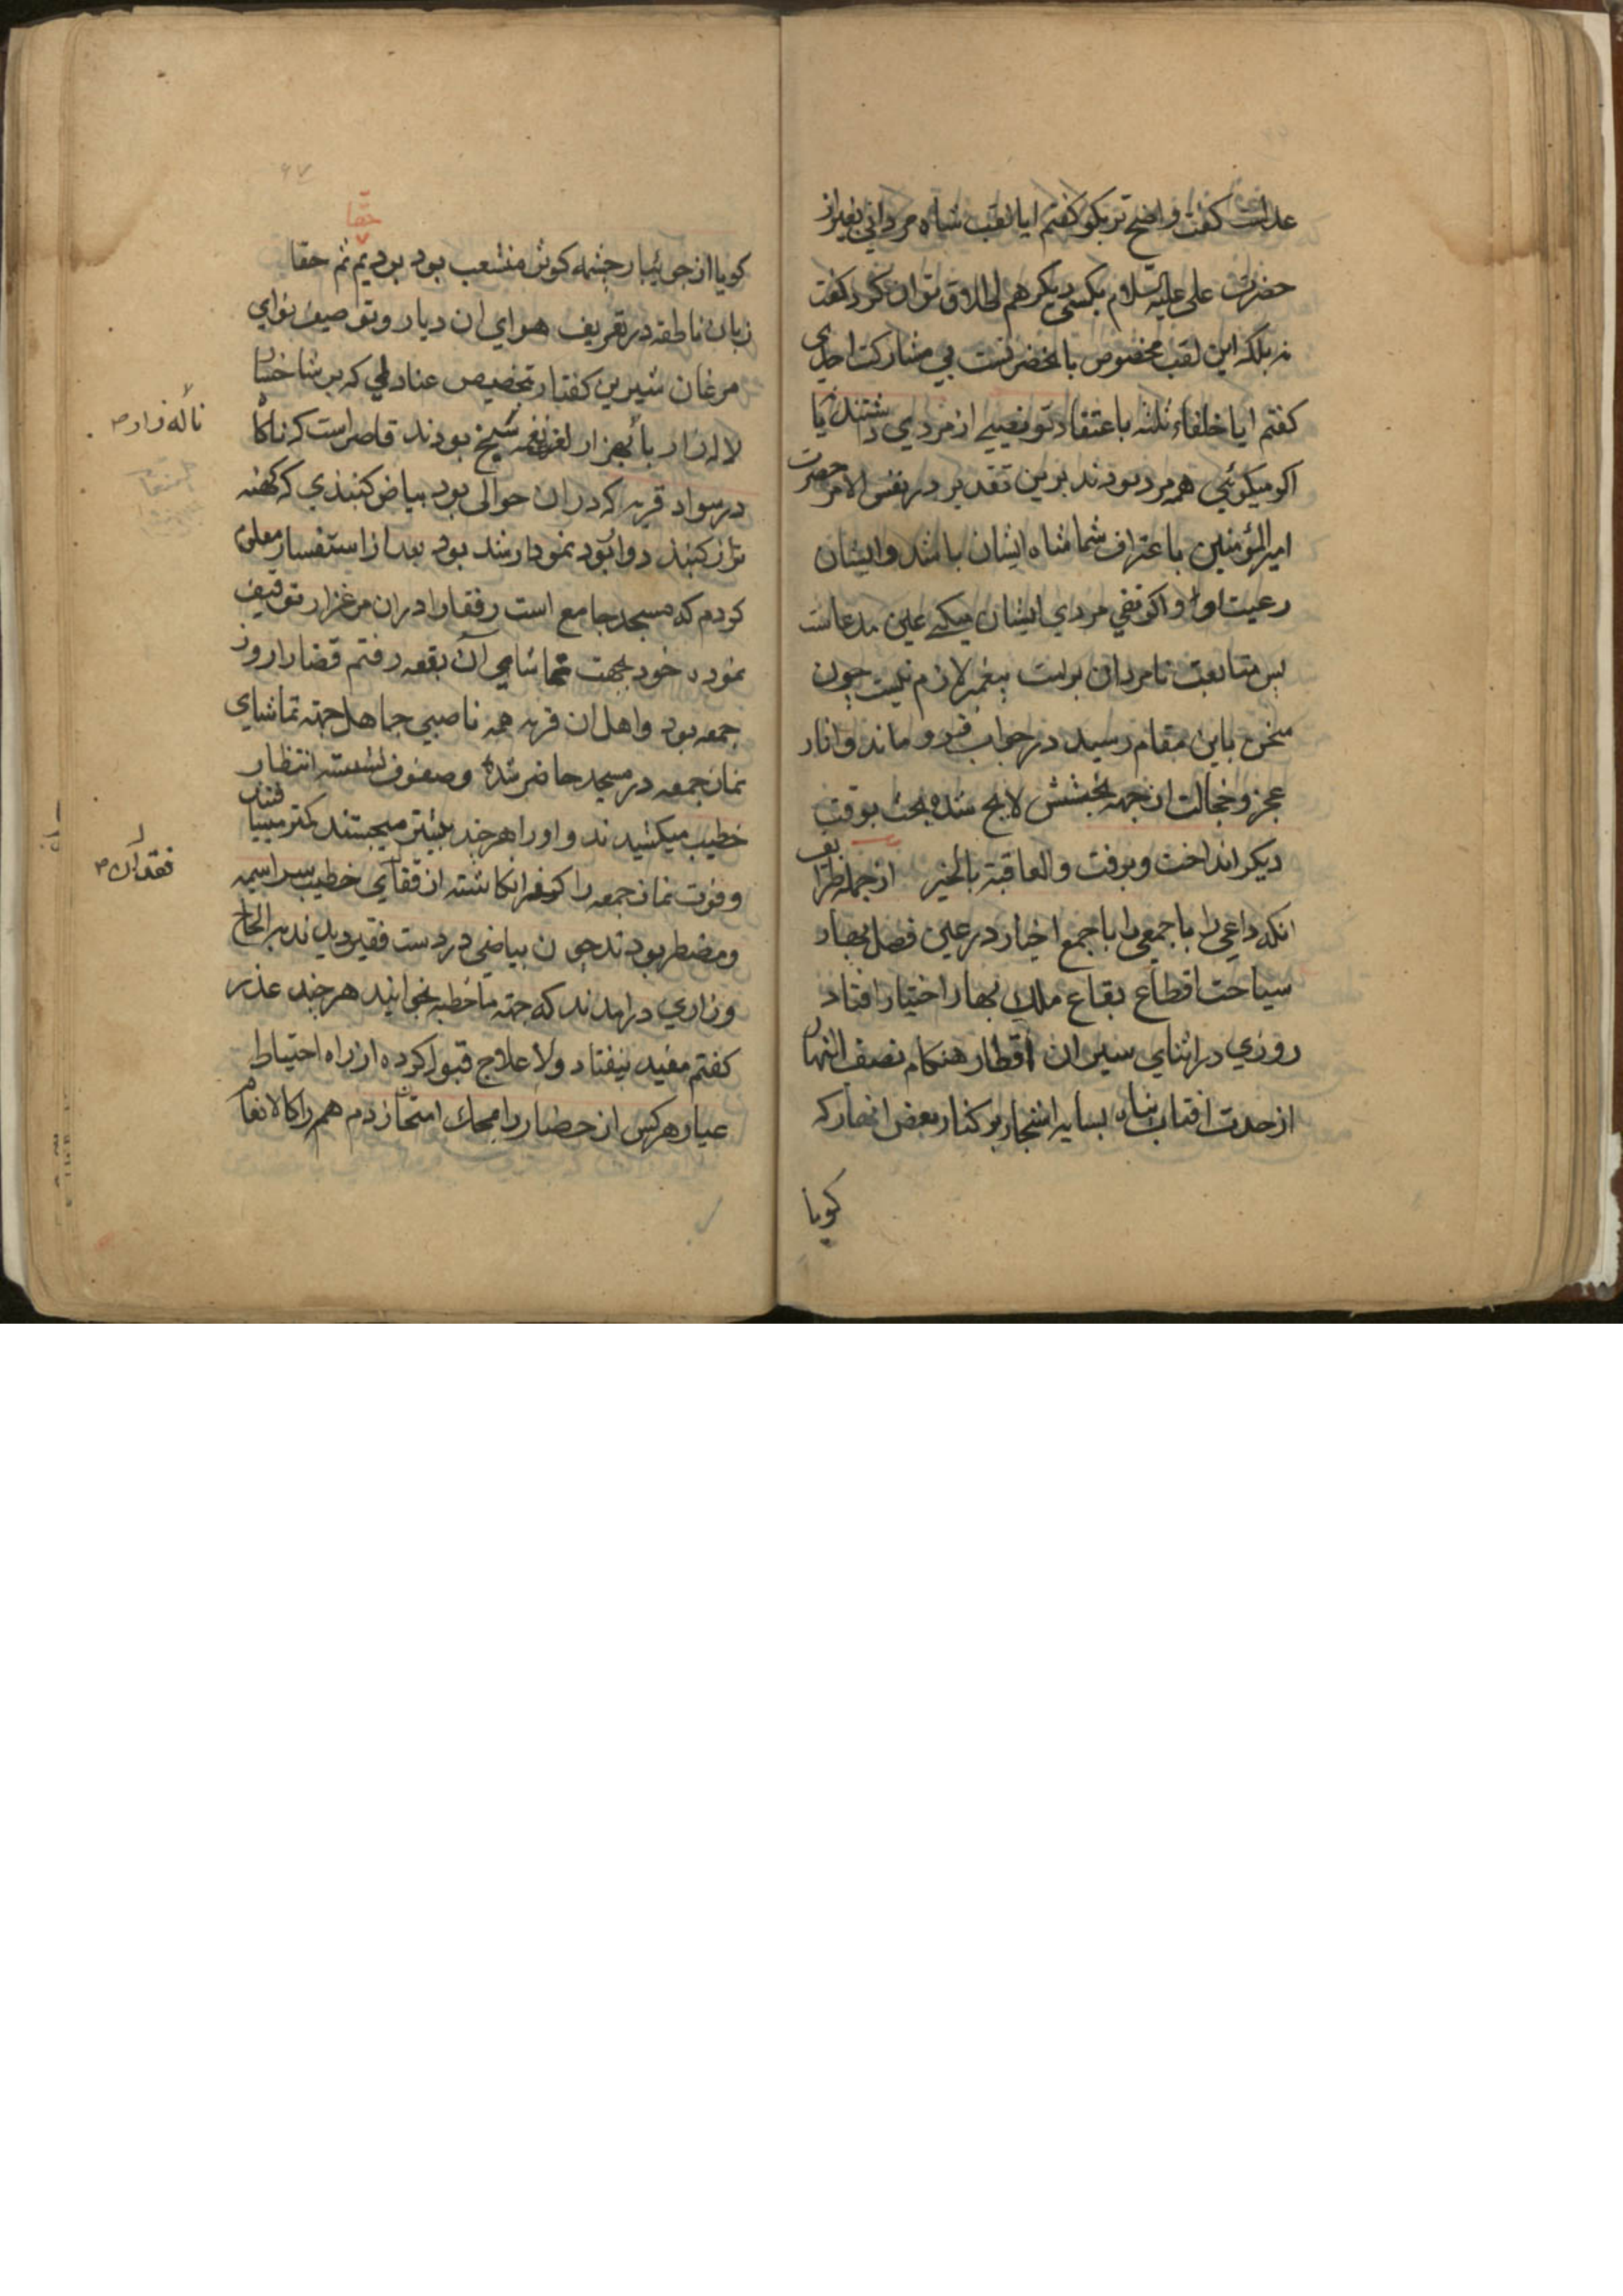 عدالت کفت واضح تر بکو کفتم ایا لقب شاه مردانی بغیر از
حضرت علی علیه السلام بکسی دیکر هم اطلاق توان کرد کفت
نه بلکه این لقب مخصوص بانحضرتست بی مشارکت احدی
کفتم ایا خلفاء ثلثه باعتقاد تو نصیبی از مردی داشتند یا
اکر میکوئی همه مرد بودند برین تقدیر در نفس الامر حضرت
امیرالمؤمنین باعتراف شما شاه ایشان باشد و ایشان
رعیت او و اکر نفی مردی ایشان میکنی عین مدعاست
پس متابعت نامردان برامت پیغمبر لازم نیست چون
سخن باین مقام رسید در جواب فرو ماند و اثار
عجز و خجالت از جبهه لایح شده بحث بوقت
دیکر انداخت و برفت والعاقبة بالخیر از جمله ظرایف
انکه داعی را با جمعی را با جمع اخیار در عین فصل بهار
سیاحت اقطاع بقاع ملک بهار اختیار افتاد
روزی در اثنای سیر ان اقطار هنکام نصف النهار
از حدت افتاب پناه بسایه اشجار بر کنار بعض انهار که
کویا
۶۷
حقا
کویا از جویبار چشمه کوثر منشعب بود بردیم ثم حقا
زبان ناطقه در تعریف هوای ان دیار و توصیف نوای
مرغان شیرین کفتار تخصیص عنادلی که بر شاخسار
لاله زار با هزار لغز نغمه سنج بودند قاصر است که ناکاه
ناله زار
در سواد قریه که دران حوالی بود بیاض کنبذی که کهنه
تر از کنبذ دوار بود نمودار شد بود بعد از استفسار معلوم
کردم که مسجد جامع است رفقا را دران مرغزار توقیف
نموده خود بجهت تماشای آن بقعه رفتم قضا را روز
جمعه بود و اهل ان قریه همه ناصبی جاهل جهته تماشای
نماز جمعه در مسجد حاضر شده و صفوف نشسته انتظار
خطیب میکشیدند و او را هر چند بیشتر میجستند کمتر مییافتند
و فوت نماز جمعه را کفر انکاشته از قفای خطیب سراسیمه
فقدان
و مضطر بودند چون بیاضی در دست فقیر دیدند بر الحاح
و زاری درامدند که جهته ما خطبه بخوانید هر چند عذر
کفتم مفید نیفتاد و لا علاج قبول کرده از راه احتیاط
عیار هر کس از حضار را بمحک امتحان زدم همه را کالانعام